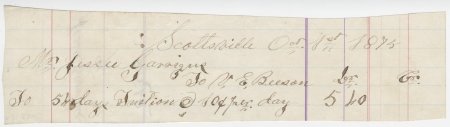 Scottsville Oct. 1st 1875
Mr. Jessie Garrigus
To V. E. Beeson Dr. Cr.
To 54 days Tuition @ 10¢ per day 5 40